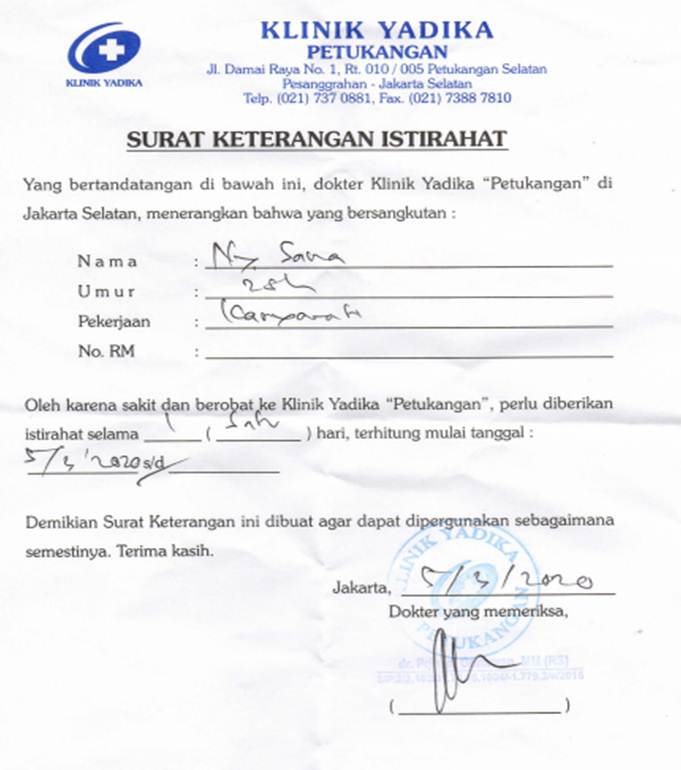 KLINIK YADIKA
PETUKANGAN
Jl. Damai Raya No. 1, Rt. 010 / 005 Petukangan Selatan
Pesanggrahan - Jakarta Selatan
Telp. (021) 737 0881, Fax. (021) 7388 7810
KLINIK YADIKA
SURAT KETERANGAN ISTIRAHAT
Yang bertandatangan di bawah ini, dokter Klinik Yadika “Petukangan” di
Jakarta Selatan, menerangkan bahwa yang bersangkutan :
Nama : Ny. Sana
Umur : 28th
Pekerjaan :
No. RM :
Oleh karena sakit dan berobat ke Klinik Yadika “Petukangan”, perlu diberikan
istirahat selama 1 ( Satu ) hari, terhitung mulai tanggal :
5/3'2020 s/d
Demikian Surat Keterangan ini dibuat agar dapat dipergunakan sebagaimana
semestinya. Terima kasih.
Jakarta, 5/3/2020
Dokter yang memeriksa,
KLINIK YADIKA
PETUKANGAN
dr.
( )